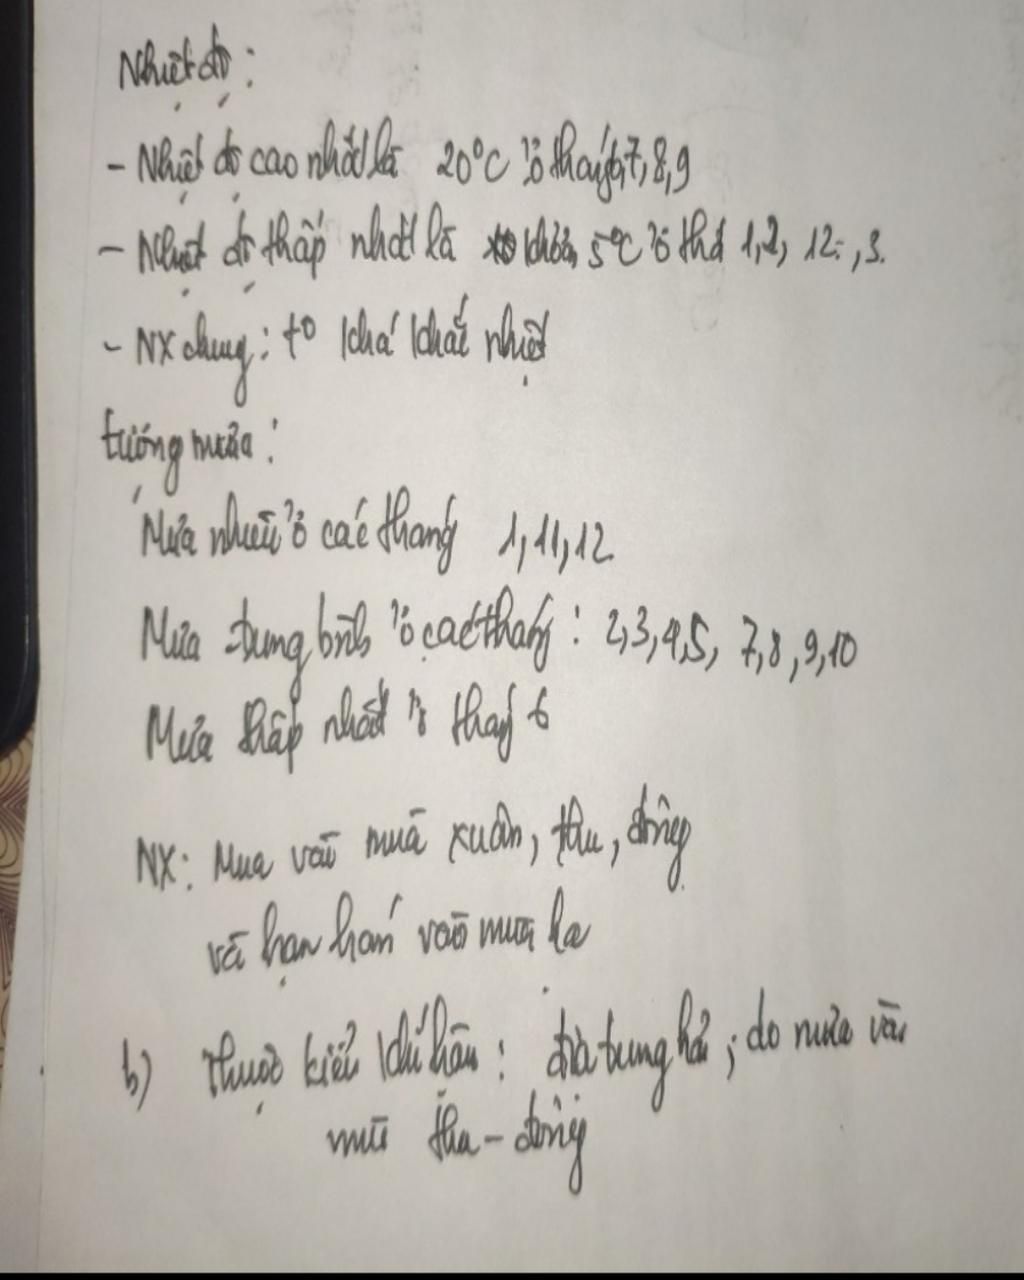 Nhiệt độ:
- Nhiệt độ cao nhất là 20°C ở tháng 6,7,8,9
- Nhiệt độ thấp nhất là khoản 5°C ở thá 1,2, 12, 3.
- NX chung: t° khá khắc nhiệt
tượng mưa:
Mưa nhiều ở các tháng 1,11,12
Mưa trung bình ở các tháng: 2,3,4,5, 7,8,9,10
Mưa thấp nhất ở tháng 6
NX: Mua vào mùa xuân, thu, đông
và hạn hán vào mùa hạ
b) Thuộc kiểu khí hậu: địa trung hải; do mưa vào
mùa thu - đông